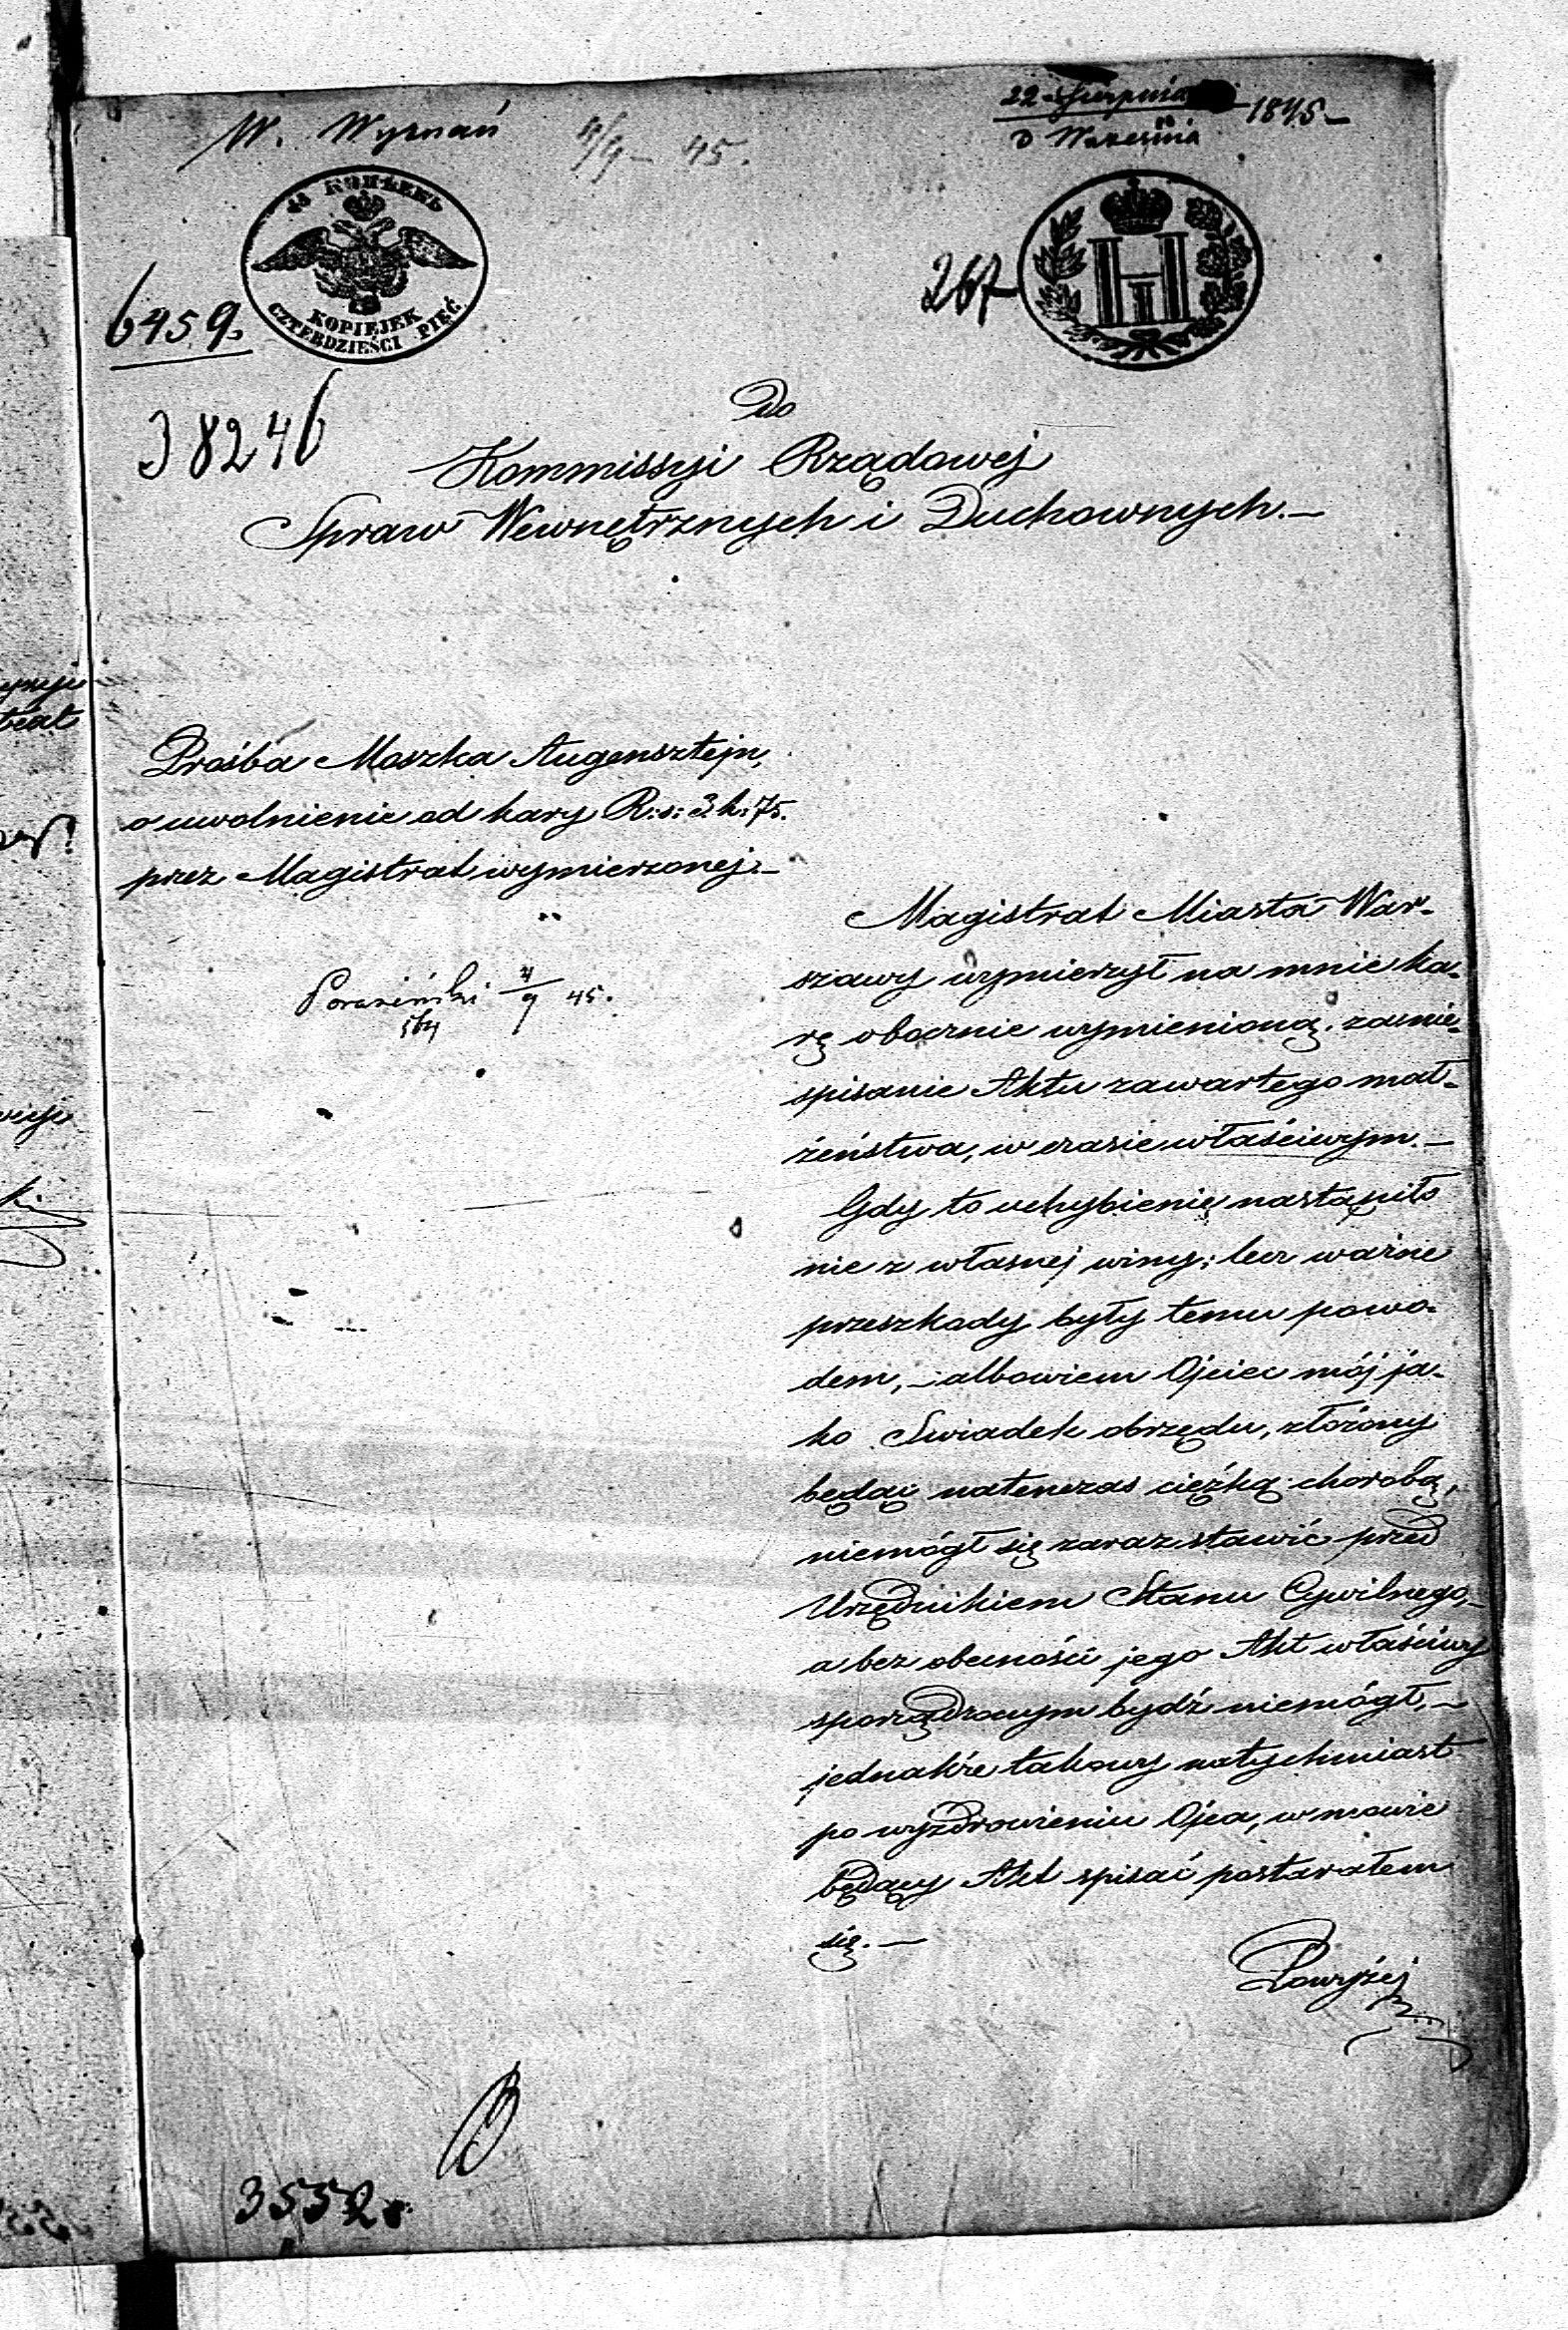 W. Wyznań 4/9 - 45.
22 Sierpnia
3 Września 1845 -
45 КОПѢЕКЪ
KOPIEJEK
CZTERDZIEŚCI PIĘĆ
6459.
267
38246
Do
Kommissyi Rządowej
Spraw Wewnętrznych i Duchownych. -
Prośba Moszka Augensztejn,
o uwolnienie od kary R: s: 3 k: 75.
przez Magistrat wymierzonej. -
4/9 45.
Magistrat Miasta War-
szawy wymierzył na mnie ka-
rę obocznie wymienioną, za nie-
spisanie Aktu zawartego mał-
żeństwa, w czasie właściwym. -
Gdy to uchybienie nastąpiło
nie z własnej winy; lecz ważne
przeszkody były temu powo-
dem, - albowiem Ojciec mój ja-
ko Swiadek obrzędu, złożony
będąc natenczas ciężką chorobą,
niemógł się zaraz stawić przed
Urzędnikiem Stanu Cywilnego, -
a bez obecności jego Akt właściwy
sporządzonym bydź niemógł, -
jednakże takowy natychmiast
po wyzdrowieniu Ojca, w mowie
będący Akt spisać postarałem
się. -
Powyżej
35532